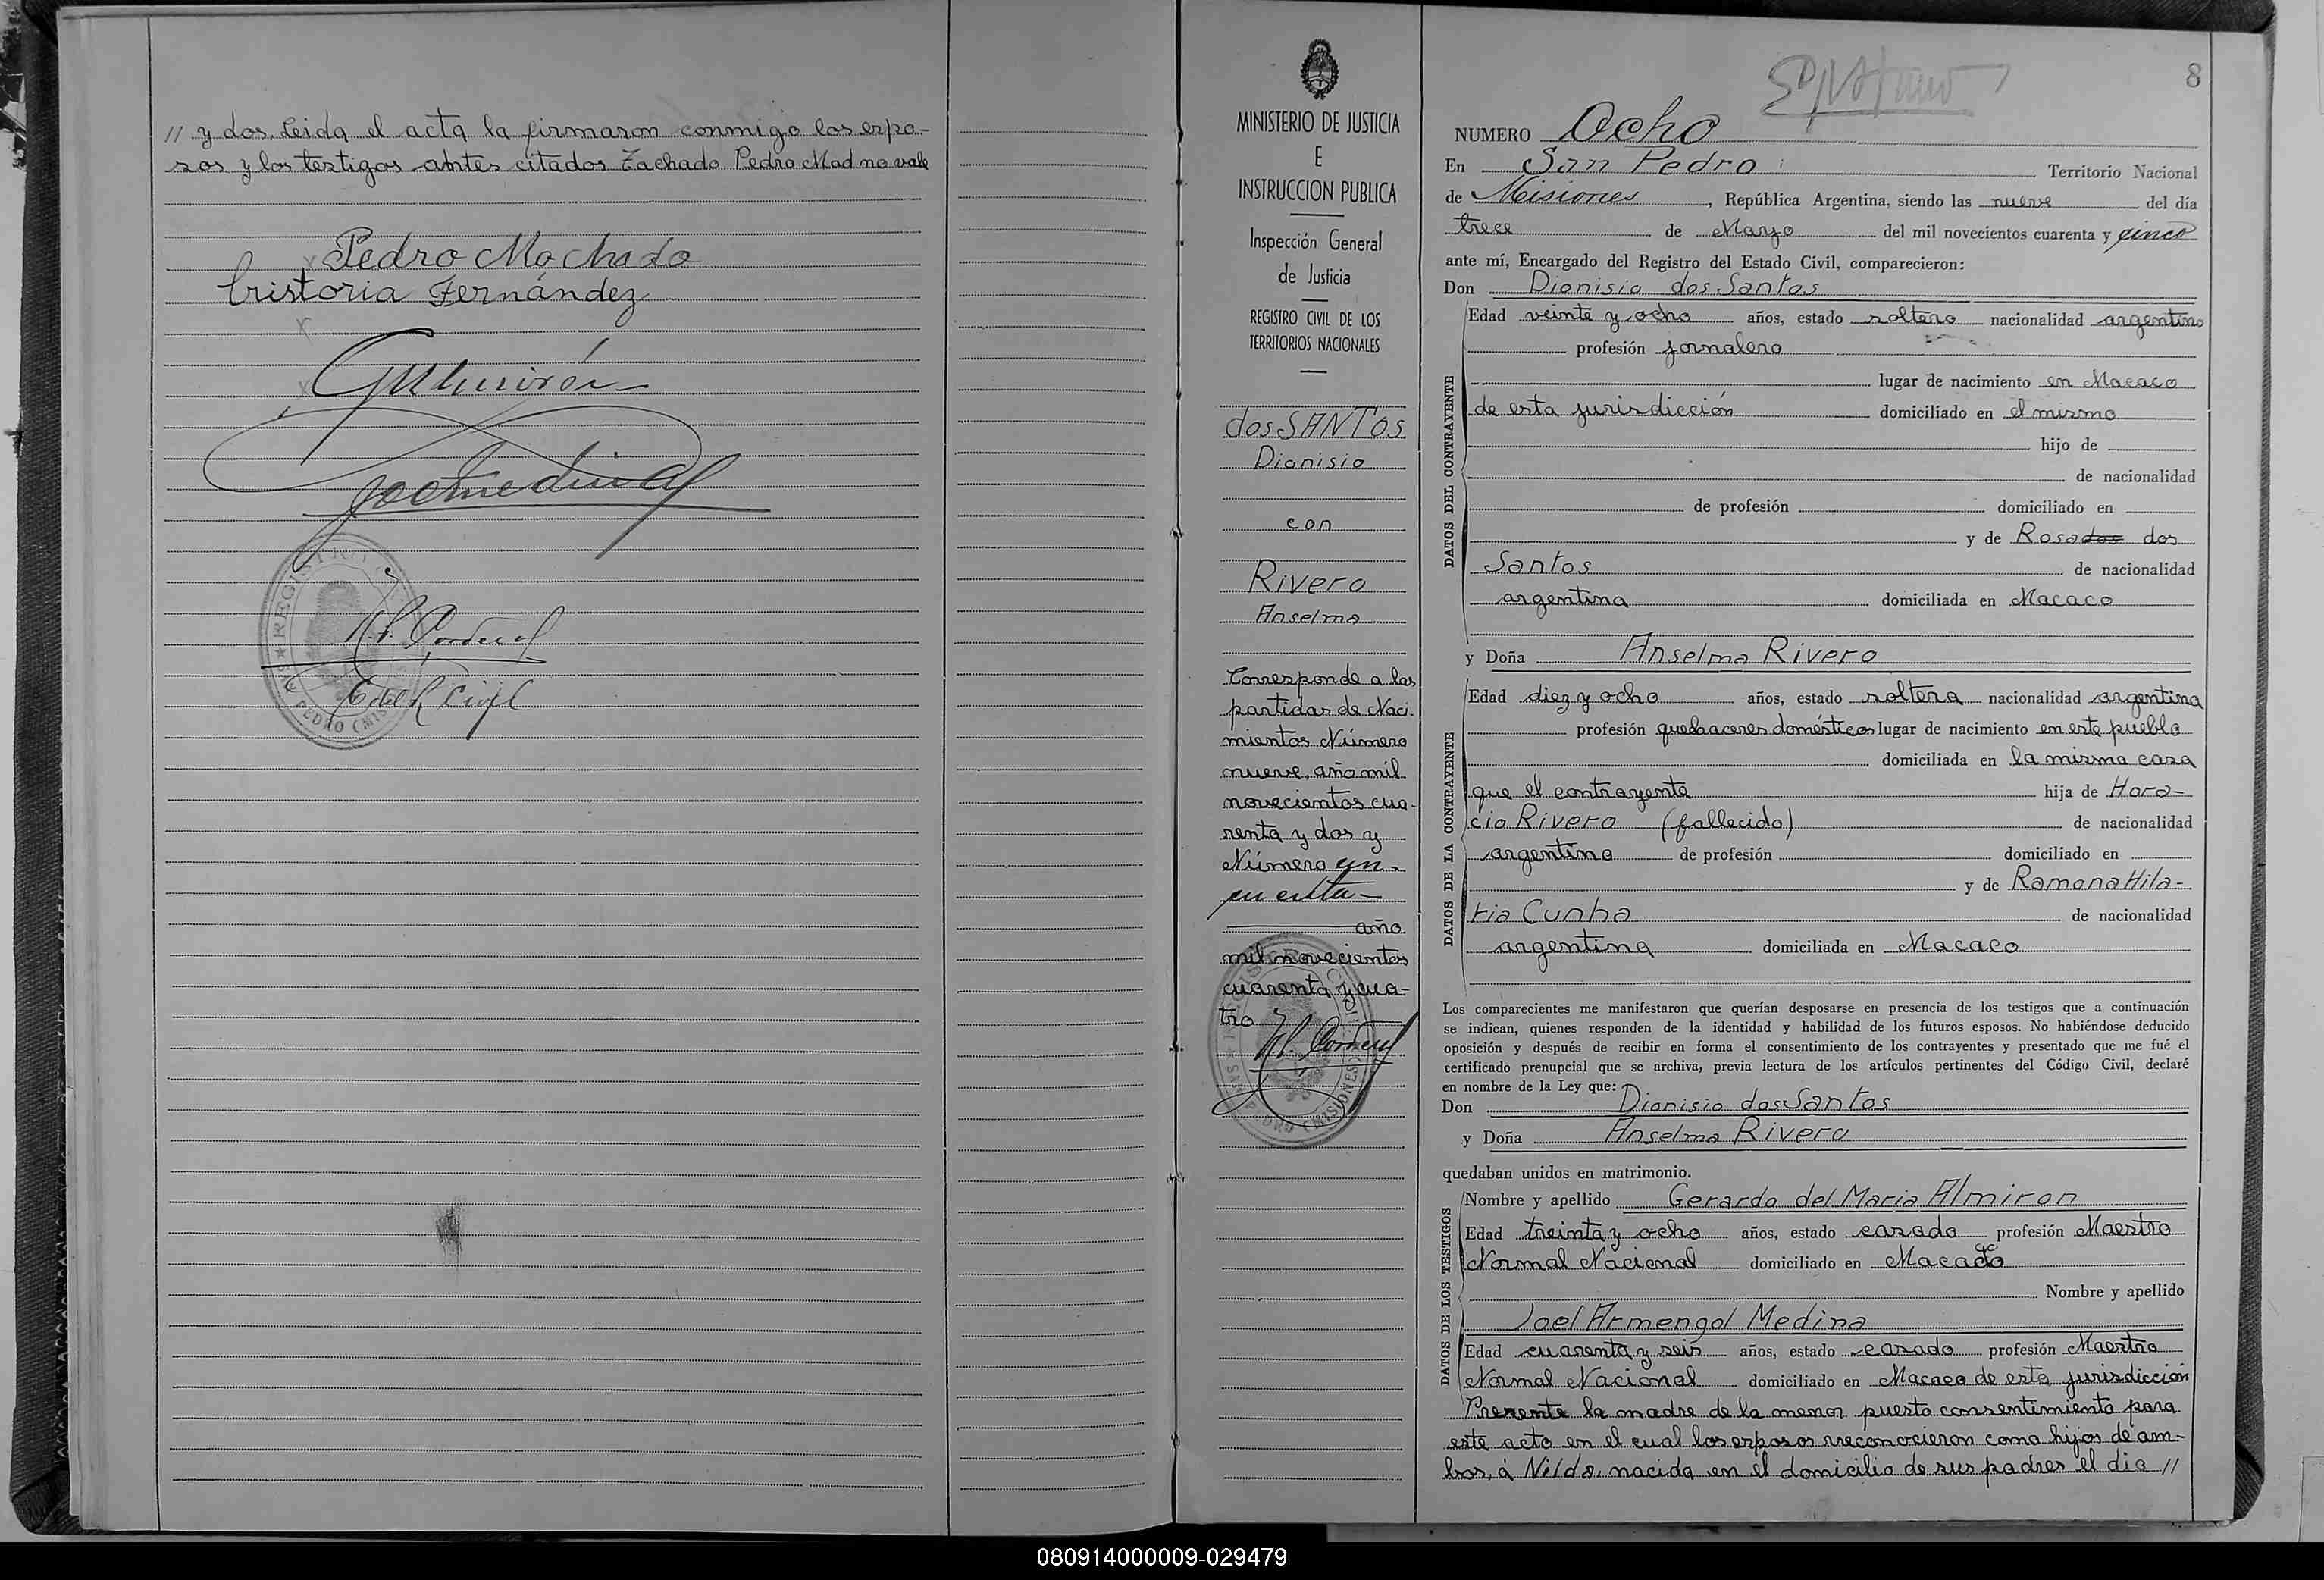 // y dos. Leida el acta la firmaron conmigo los espo-
sos y los testigos antes citados Tachado Pedro Mad no vale
Pedro Machado
Cristoria Fernández
GMAlmirón
E del R Civil
MINISTERIO DE JUSTICIA
E
INSTRUCCION PUBLICA
Inspección General
de Justicia
REGISTRO CIVIL DE LOS
TERRITORIOS NACIONALES
dos SANTOS
Dionisio
con
Rivero
Anselma
Corresponde a las
partidas de Naci-
mientos Número
nueve, año mil
novecientos cua-
renta y dos y
Número
año
mil novecientos
cuarenta y cua-
tro
8
NUMERO Ocho
En San Pedro Territorio Nacional
de Misiones, República Argentina, siendo las nueve del día
trece de Marzo del mil novecientos cuarenta y cinco
ante mí, Encargado del Registro del Estado Civil, comparecieron:
Don Dionisio dos Santos
DATOS DEL CONTRAYENTE
Edad veinte y ocho años, estado soltero nacionalidad argentino
profesión jornalero
lugar de nacimiento en Macaco
de esta jurisdicción domiciliado en el mismo
hijo de
de nacionalidad
de profesión domiciliado en
y de Rosa dos dos
Santos de nacionalidad
argentina domiciliada en Macaco
y Doña Anselma Rivero
DATOS DE LA CONTRAYENTE
Edad diez y ocho años, estado soltera nacionalidad argentina
profesión quehaceres domésticos lugar de nacimiento en este pueblo
domiciliada en la misma casa
que el contrayente hija de Hora-
cio Rivero (fallecido) de nacionalidad
argentino de profesión domiciliado en
y de Ramona Hila-
ria Cunha de nacionalidad
argentina domiciliada en Macaco
Los comparecientes me manifestaron que querían desposarse en presencia de los testigos que a continuación
se indican, quienes responden de la identidad y habilidad de los futuros esposos. No habiéndose deducido
oposición y después de recibir en forma el consentimiento de los contrayentes y presentado que me fué el
certificado prenupcial que se archiva, previa lectura de los artículos pertinentes del Código Civil, declaré
en nombre de la Ley que:
Don Dionisio dos Santos
y Doña Anselma Rivero
quedaban unidos en matrimonio.
DATOS DE LOS TESTIGOS
Nombre y apellido Gerardo del Maria Almiron
Edad treinta y ocho años, estado casado profesión Maestro
Normal Nacional domiciliado en Macaco
Nombre y apellido
Joel Armengol Medina
Edad cuarenta y seis años, estado casado profesión Maestro
Normal Nacional domiciliado en Macaco de esta jurisdicción
Presente la madre de la menor puesta consentimiento para
este acto en el cual los esposos reconocieron como hijos de am-
bos, á Nilda, nacida en el domicilio de sus padres el dia //
080914000009-029479